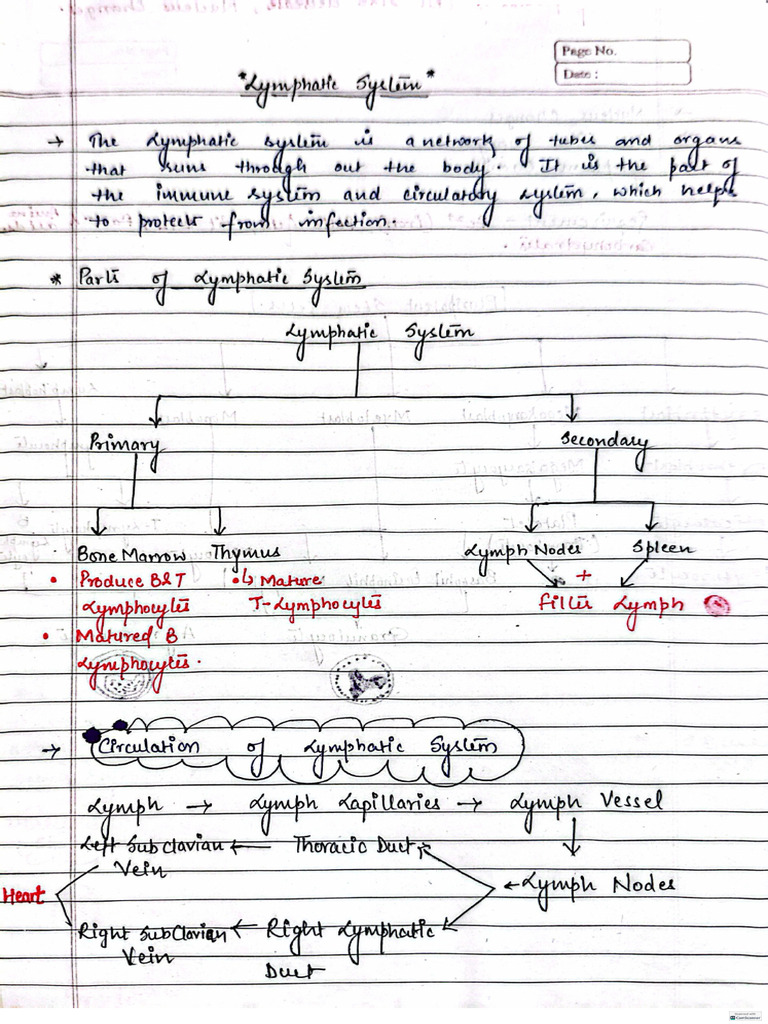 Page No.
Date :
*Lymphatic System*
→ The Lymphatic system is a network of tubes and organs
that runs through out the body. It is the part of
the immune system and circulatory system, which helps
to protect from infection.
* Parts of Lymphatic System
Lymphatic System
Primary Secondary
Bone Marrow Thymus Lymph Nodes Spleen
• Produce B & T •↳ Mature +
Lymphocytes T-Lymphocytes Filter Lymph
• Matured B
Lymphocytes.
→ Circulation of Lymphatic System
Lymph → Lymph Capillaries → Lymph Vessel
Left Subclavian ← Thoracic Duct
Vein
Heart ← Lymph Nodes
Right SubClavian ← Right Lymphatic
Vein Duct
CamScanner